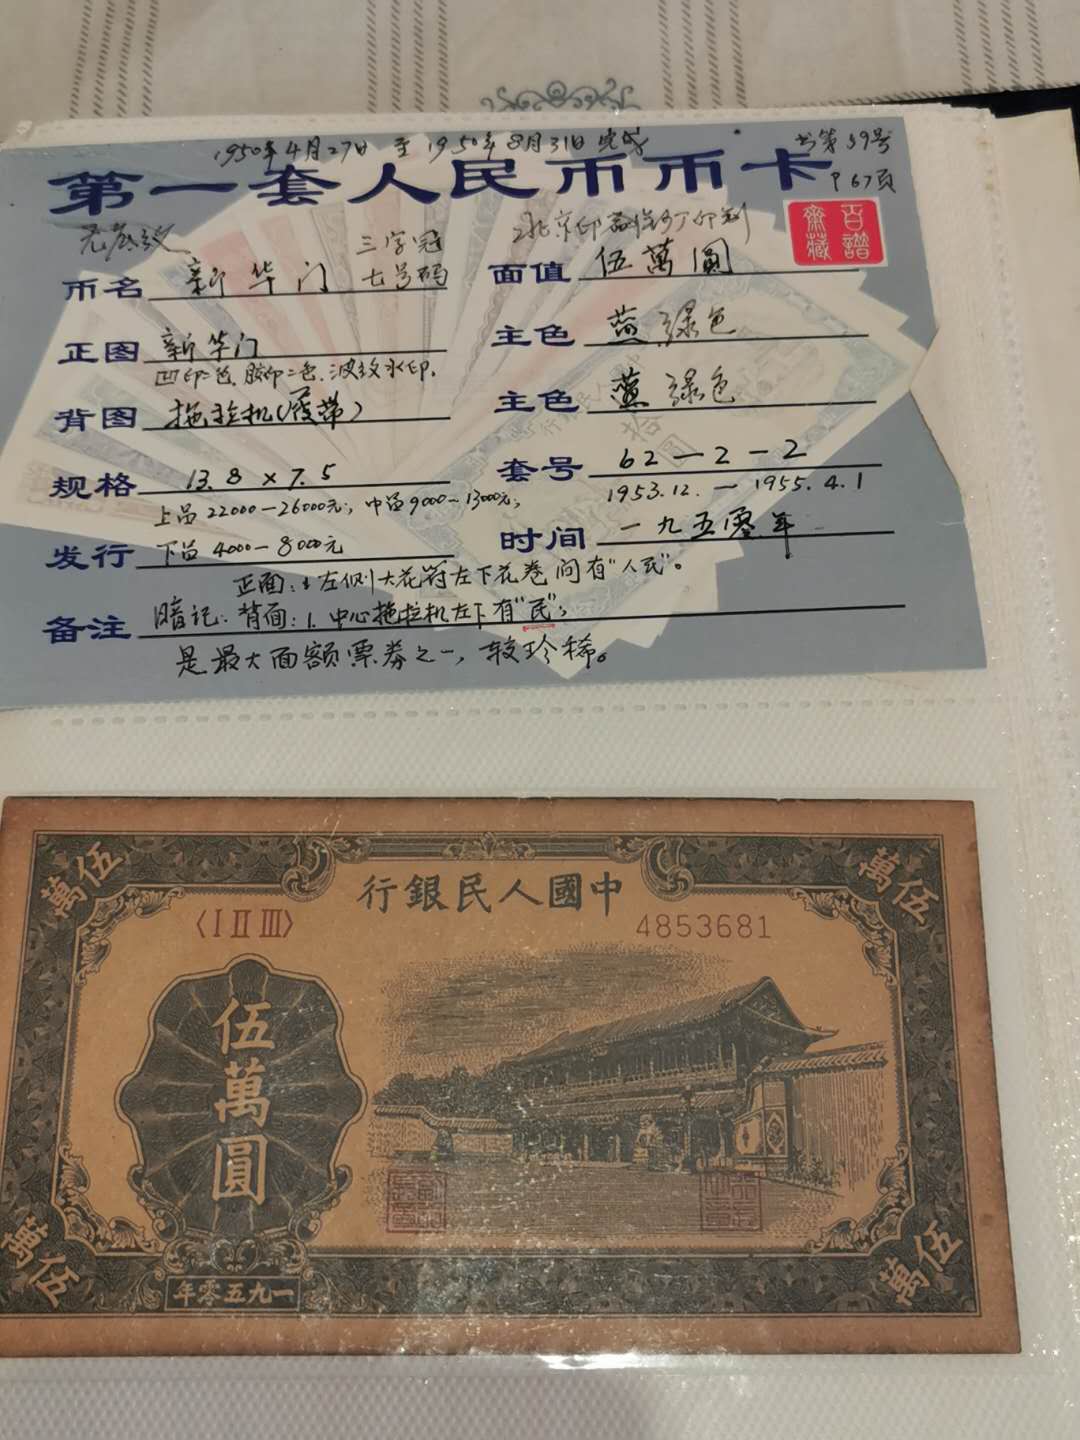 1950年4月27日 至 1950年8月31日 完成
书第59号
第一套人民币币卡
P67页
无底纹
三字冠
北京印
印制
百谱
斋藏
币名 新华门 七号码
面值 伍萬圓
正图 新华门
主色 蓝绿色
凹印二色、胶印二色、波纹水印。
背图 拖拉机(履带)
主色 蓝绿色
规格 13.8×7.5
套号 62-2-2
上品22000-26000元; 中品9000-13000元;
1953.12.-1955.4.1
发行 下品4000-8000元
时间 一九五零年
正面:左侧大花符左下花卷间有"人民"。
备注 暗记:背面:1.中心拖拉机左下有"民";
是最大面额票券之一,较珍稀。
伍萬
伍萬
行銀民人國中
〈I II III〉
4853681
伍萬圓
伍萬
伍萬
年零五九一